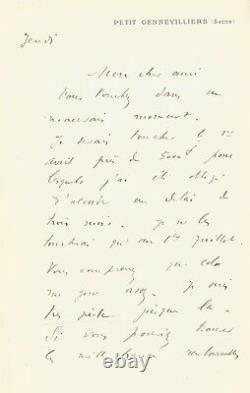 PETIT GENNEVILLIERS (Seine)
Jeudi
Mon cher ami
Vous tombez dans un
mauvais moment.
Je devais toucher le 1er
avril près de pour
lesquels j'ai été obligé
d'accorder un délai de
trois mois. Je ne les
toucherai qu'au 1er juillet.
Vous comprenez que cela
me gêne assez. Je suis
très jusque là.
Si vous pouviez trouver
les mille francs remboursables
© ebay